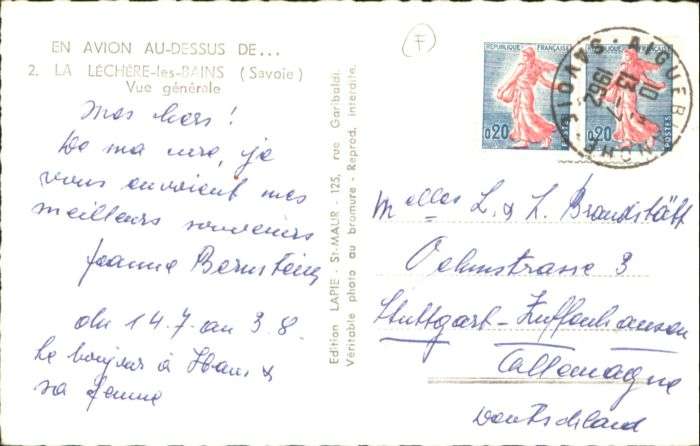 F
EN AVION AU-DESSUS DE...
2. LA LÉCHÈRE-les-BAINS (Savoie)
Vue générale
Mes
!
De ma cure, je
vous envoient mes
meilleurs souvenirs
Jeanne Bernstein
du 14.7 au 3.8.
Le bonjour à Hans &
sa femme
Edition LAPIE - St-MAUR - 125, rue Garibaldi.
Véritable photo au bromure - Reprod. interdite.
REPUBLIQUE FRANÇAISE
0,20
POSTES
REPUBLIQUE FRANÇAISE
0,20
POSTES
AIGUEBLANCHE
SAVOIE
10
13
7
1962
Melles L. & L. Brandstätt
Oelmstrasse 3
Stuttgart-Zuffenhausen
Allemagne
Deutschland